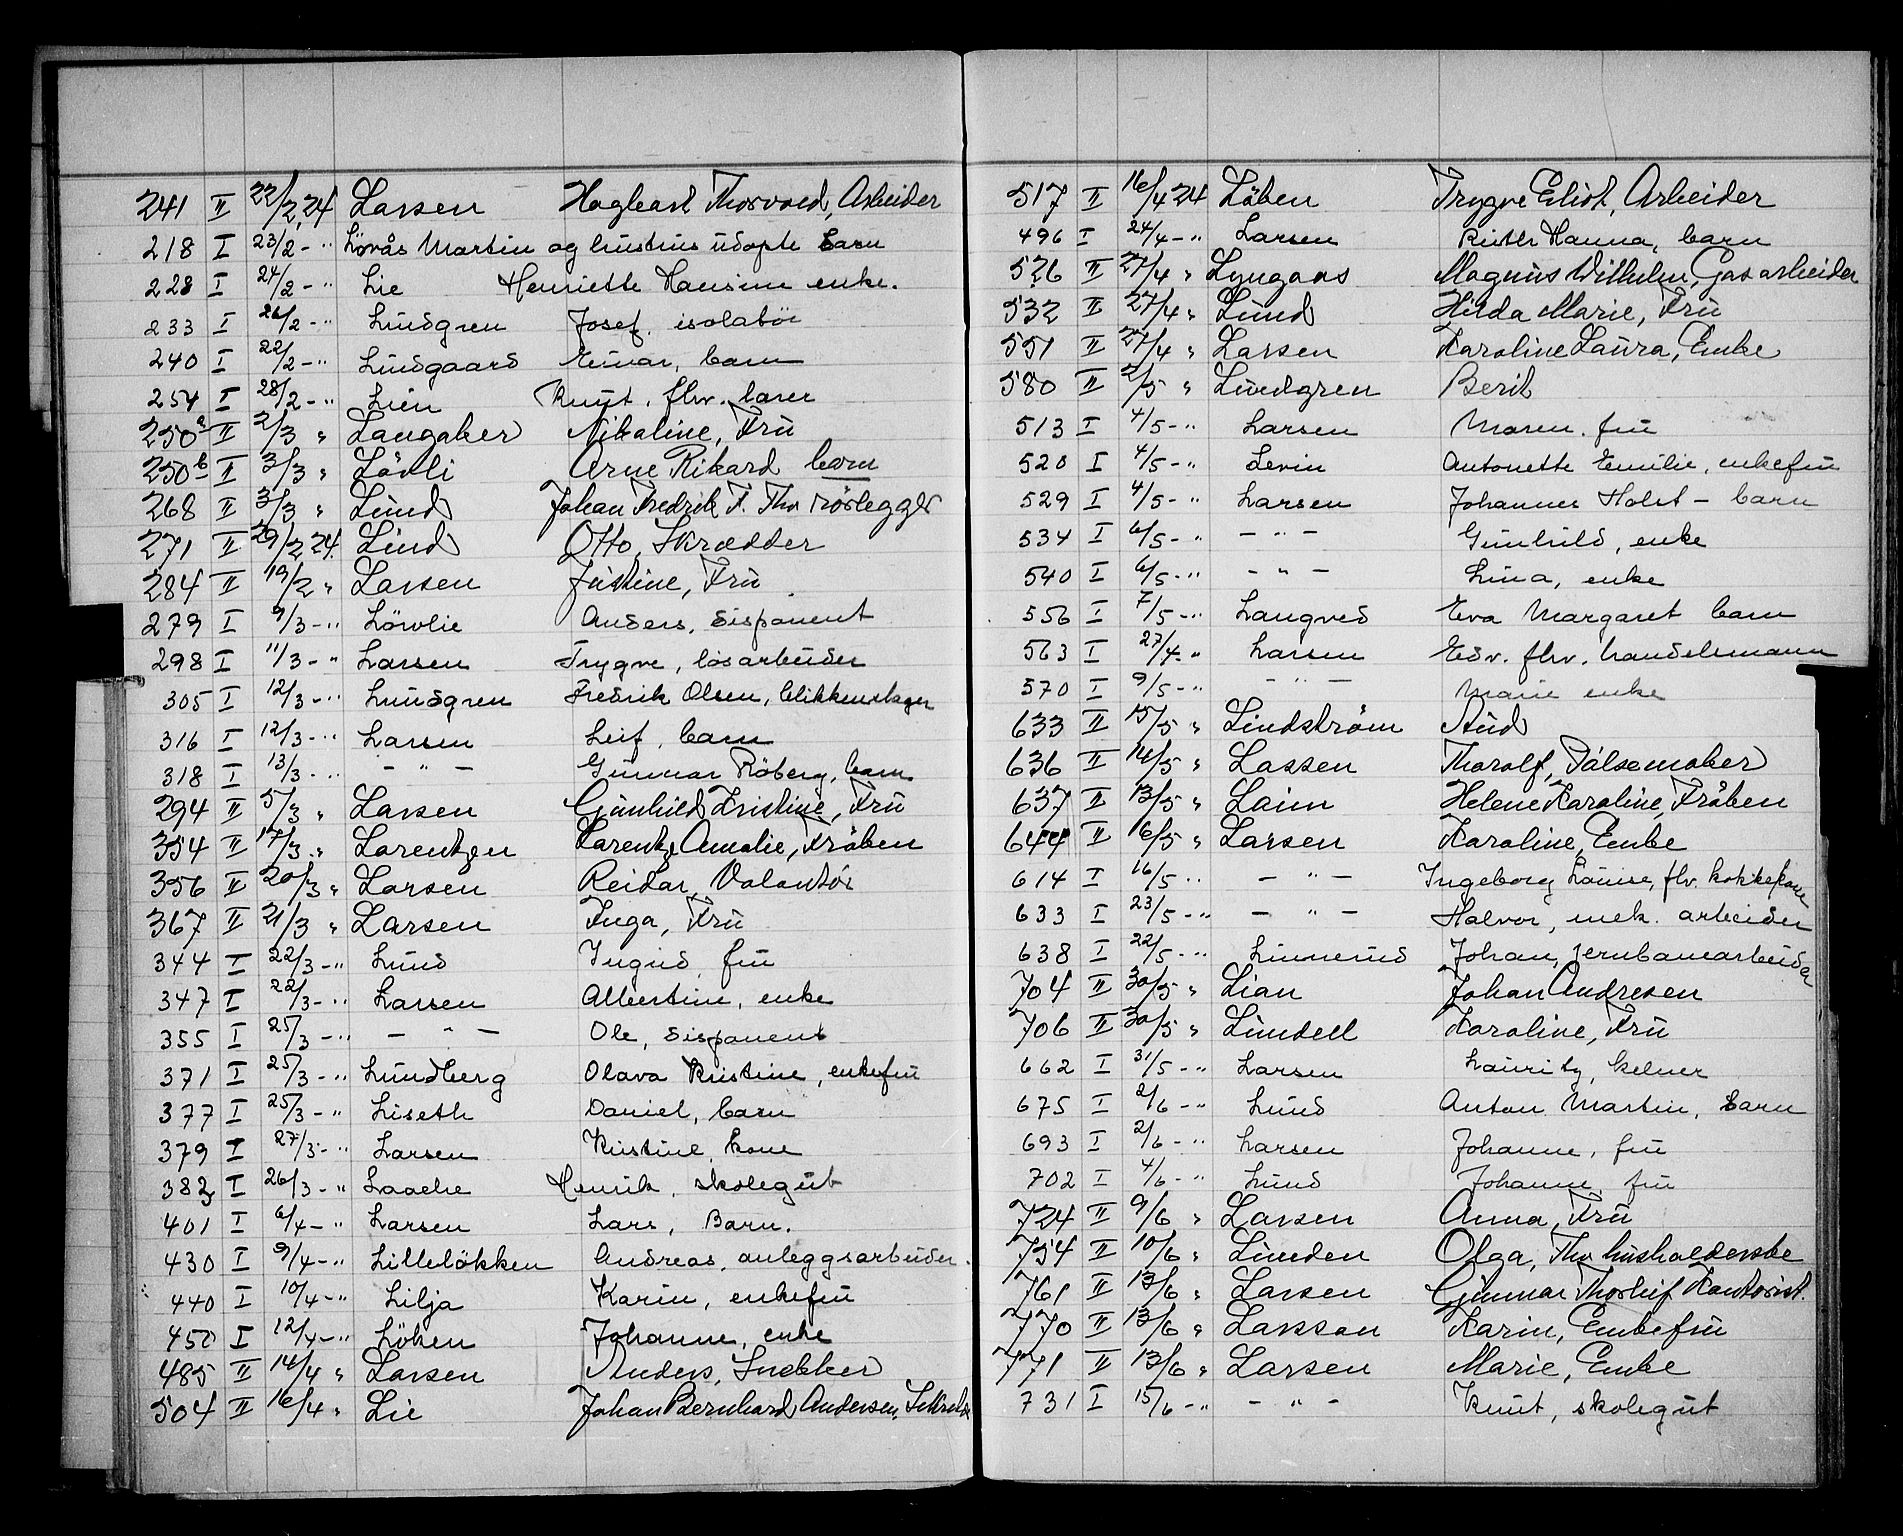 241 II 22/2 24 Larsen Hagbart Thorvald, Arbeider
218 I 23/2 - " Lövås Martin og hustrus udøpte barn
228 I 24/2 - " Lie Henriette Hansine enke.
233 I 26/2 - " Lundgren Josef, isolatör
240 I 22/2 - " Lundgaard Einar, barn
254 I 28/2 - " Lien Knut, fhv. barer
250a II 2/3 " Langaker Nikoline, Fru
250b II 3/3 " Lövli Arne Rikard barn
268 II 3/3 " Lund Johan Fredrik F. Thv rörlegger
271 II 29/2 24. Lind Otto, Skrædder
284 II 19/2 " Larsen Justine, Fru
279 I 9/3 - " Lövlie Anders, disponent
298 I 11/3 - " Larsen Trygve, løsarbeider
305 I 12/3 - " Lundgren Fredrik Olsen, blikkenslager
316 I 12/3 - " Larsen Leif, barn
318 I 13/3 - " - " - Gunnar Röberg, barn
294 II 5/3 " Larsen Gunhild Kristine, Fru
354 II 17/3 " Larentzen Larentze Amalie, Fröken
356 II 20/3 " Larsen Reidar, Volontör
367 II 21/3 " Larsen Inga, Fru
344 I 22/3 - " Lund Ingrid, fru
347 I 22/3 - " Larsen Albertine, enke
355 I 25/3 - " - " - Ole, disponent
371 I 25/3 - " Lundberg Olava Kristine, enkefru
377 I 25/3 - " Liseth Daniel, barn
379 I 27/3 - " Larsen Kristine, kone
383 I 26/3 - " Laache Henrik, skolegut
401 I 6/4 - " Larsen Lars, Barn.
430 I 9/4 - " Lilleløkken Andreas, anleggsarbeider.
440 I 10/4 - " Lilja Karin, enkefru
450 I 12/4 - " Löken Johanne, enke
485 II 14/4 " Larsen Anders, Snekker
504 II 16/4 " Lie Johan Bernhard Andersen,
517 II 16/4 24 Löken Trygve Eliot, Arbeider
496 I 24/4 - " Larsen Ruth Hanna, barn
526 II 27/4 " Lyngaas Magnus Wilhelm, Gasarbeider
532 II 27/4 " Lund Hilda Marie, Fru
551 II 27/4 " Larsen Karoline Laura, Enke
580 II 2/5 " Lundgren Berit
513 I 4/5 - " Larsen Maren, fru
520 I 4/5 - " Levin Antonette Emilie, enkefru
529 I 4/5 - " Larsen Johannes Holst - barn
534 I 6/5 - " - " - Gunhild, enke
540 I 6/5 - " - " - Lina, enke
556 I 7/5 - " Langved Eva Margaret barn
563 I 27/4 - " Larsen Edv. fhv. handelsmann
570 I 9/5 - " - " - Marie enke
633 II 15/5 " Lindström Aud
636 II 14/5 " Larsen Thorolf, Pölsemaker
637 II 13/5 " Laim Helene Karoline, Fröken
644 II 16/5 " Larsen Karoline, Enke
614 I 16/5 " - " - Ingeborg Louise, fhv. kokkekone
633 I 23/5 - " - " - Halvor, mek. arbeider
638 I 22/5 - " Linnerud Johan, jernbanearbeider
704 II 30/5 " Lian Johan Andresen
706 II 30/5 " Lundell Karoline, Fru
662 I 31/5 - " Larsen Lauritz, kelner
675 I 2/6 - " Lund Anton Martin, barn
693 I 2/6 - " Larsen Johanne, fru
702 I 4/6 - " Lund Johanne, fru
724 II 9/6 " Larsen Anna, Fru
754 II 10/6 " Linden Olga, Thv husholderske
761 II 13/6 " Larsen Gunnar Thorleif Kontorist.
770 II 13/6 " Larsson Karin, Enkefru
771 II 13/6 " Larsen Marie, Enke
731 I 15/6 - " - " - Knut, skolegut